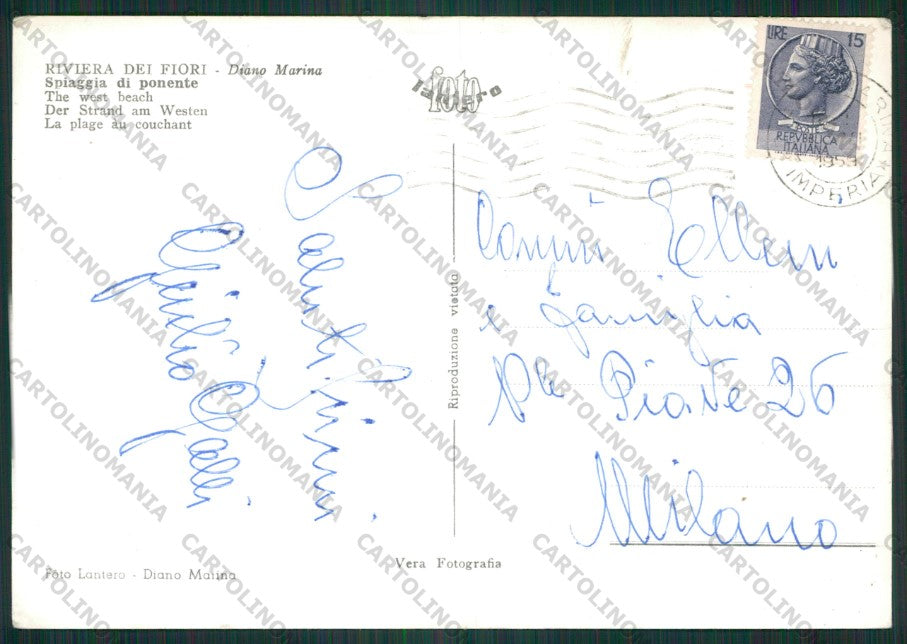 RIVIERA DEI FIORI - Diano Marina
Spiaggia di ponente
The west beach
Der Strand am Westen
La plage au couchant
foto
lantero
LIRE 15
POSTE
REPVBBLICA
ITALIANA
IMPERIA
Saluti
Giulio Galli
Reproduzione vietata
Ellem
e famiglia
Ple Piave 26
Milano
Vera Fotografia
Foto Lantero - Diano Marina
CARTOLINOMANIA